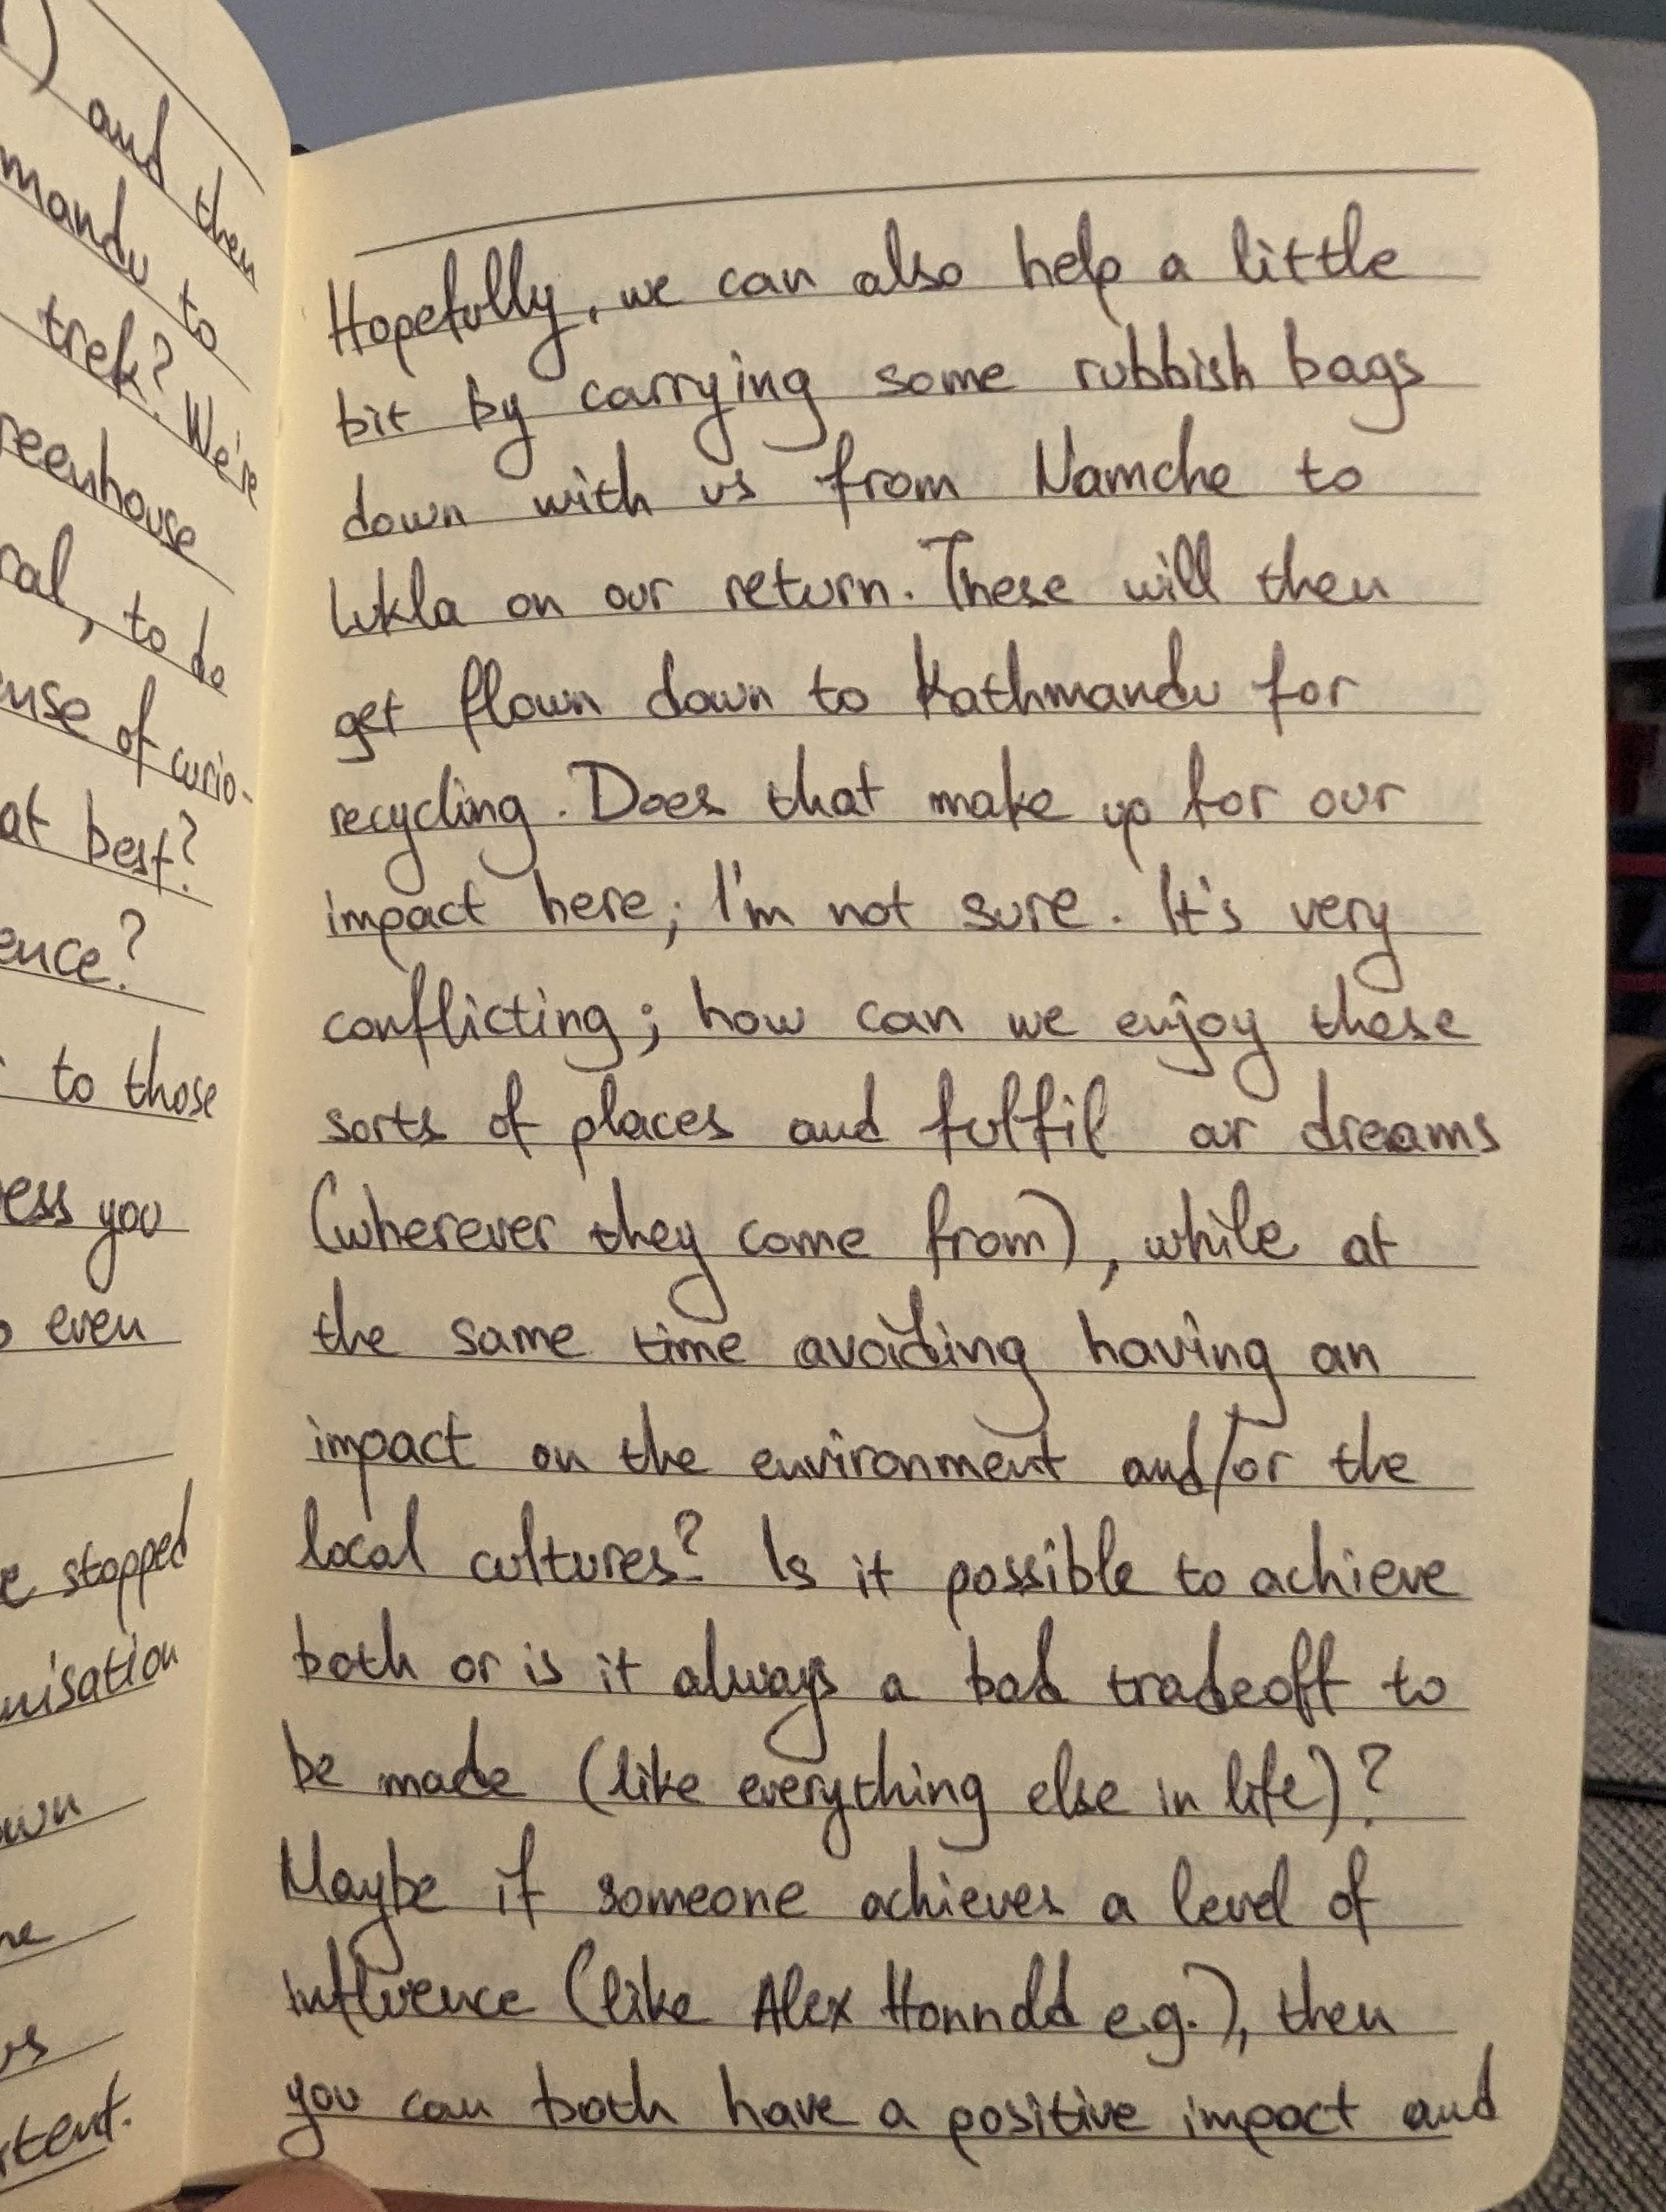 and then
to
trek? We're
to do
of curio-
at best?
to those
you
even
stopped
Hopefully, we can also help a little
bit by carrying some rubbish bags
down with us from Namche to
Lukla on our return. These will then
get flown down to Kathmandu for
recycling. Does that make up for our
impact here; I'm not sure. It's very
conflicting; how can we enjoy these
sorts of places and fulfil our dreams
(wherever they come from), while at
the same time avoiding having an
impact on the environment and/or the
local cultures? Is it possible to achieve
both or is it always a bad tradeoff to
be made (like everything else in life)?
Maybe if someone achieves a level of
influence (like Alex Honnold e.g.), then
you can both have a positive impact and